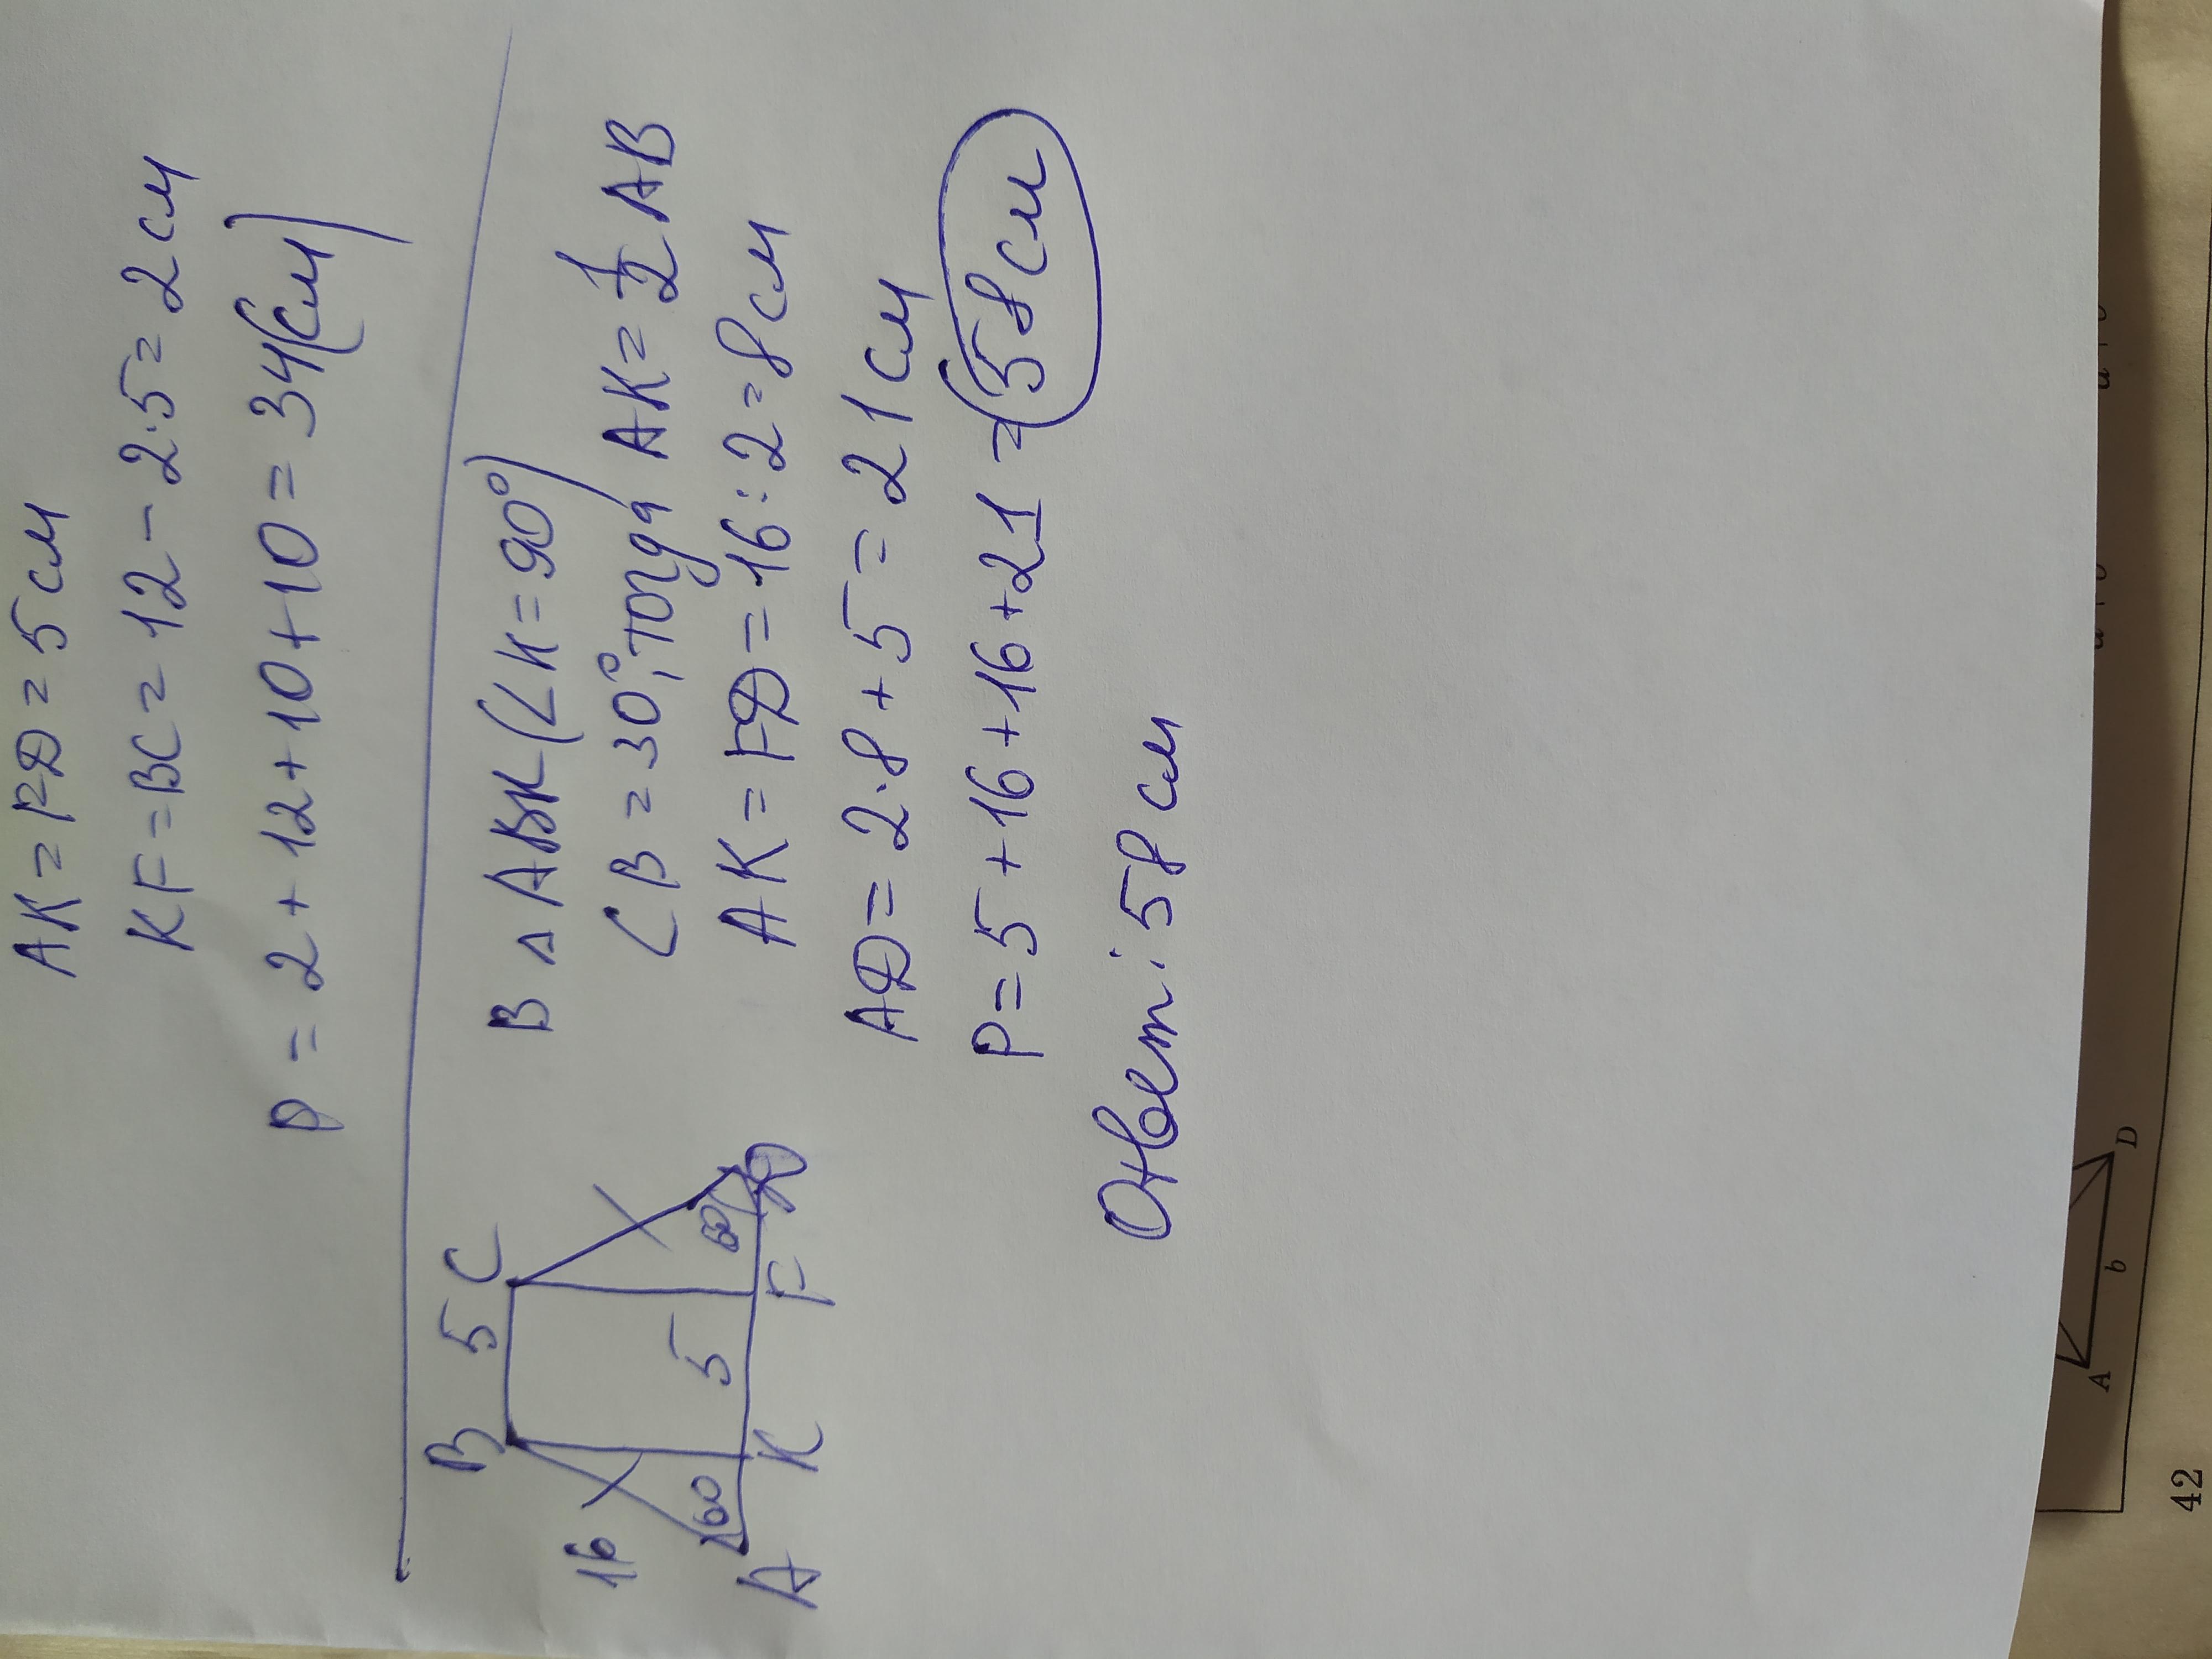 AK = FD = 5 см
KF = BC = 12 - 2·5 = 2 см
P = 2 + 12 + 10 + 10 = 34 (см)
В △ ABK (∠K = 90°)
∠B = 30°, тогда AK = 1/2 AB
AK = FD = 16 : 2 = 8 см
AD = 2·8 + 5 = 21 см
P = 5 + 16 + 16 + 21 = 58 см
Ответ: 58 см
B 5 C
16
60 5 60
A K F D
A b D
42